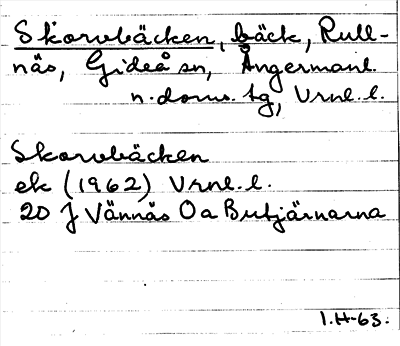 Skorvbäcken, bäck, Rull-
näs, Gideå sn, Ångermanl.
n. doms. tg, Vrnl. l.
Skorvbäcken
ek (1962) Vrnl. l.
20 J Vännäs Oa Butjärnarna
I.H-63.